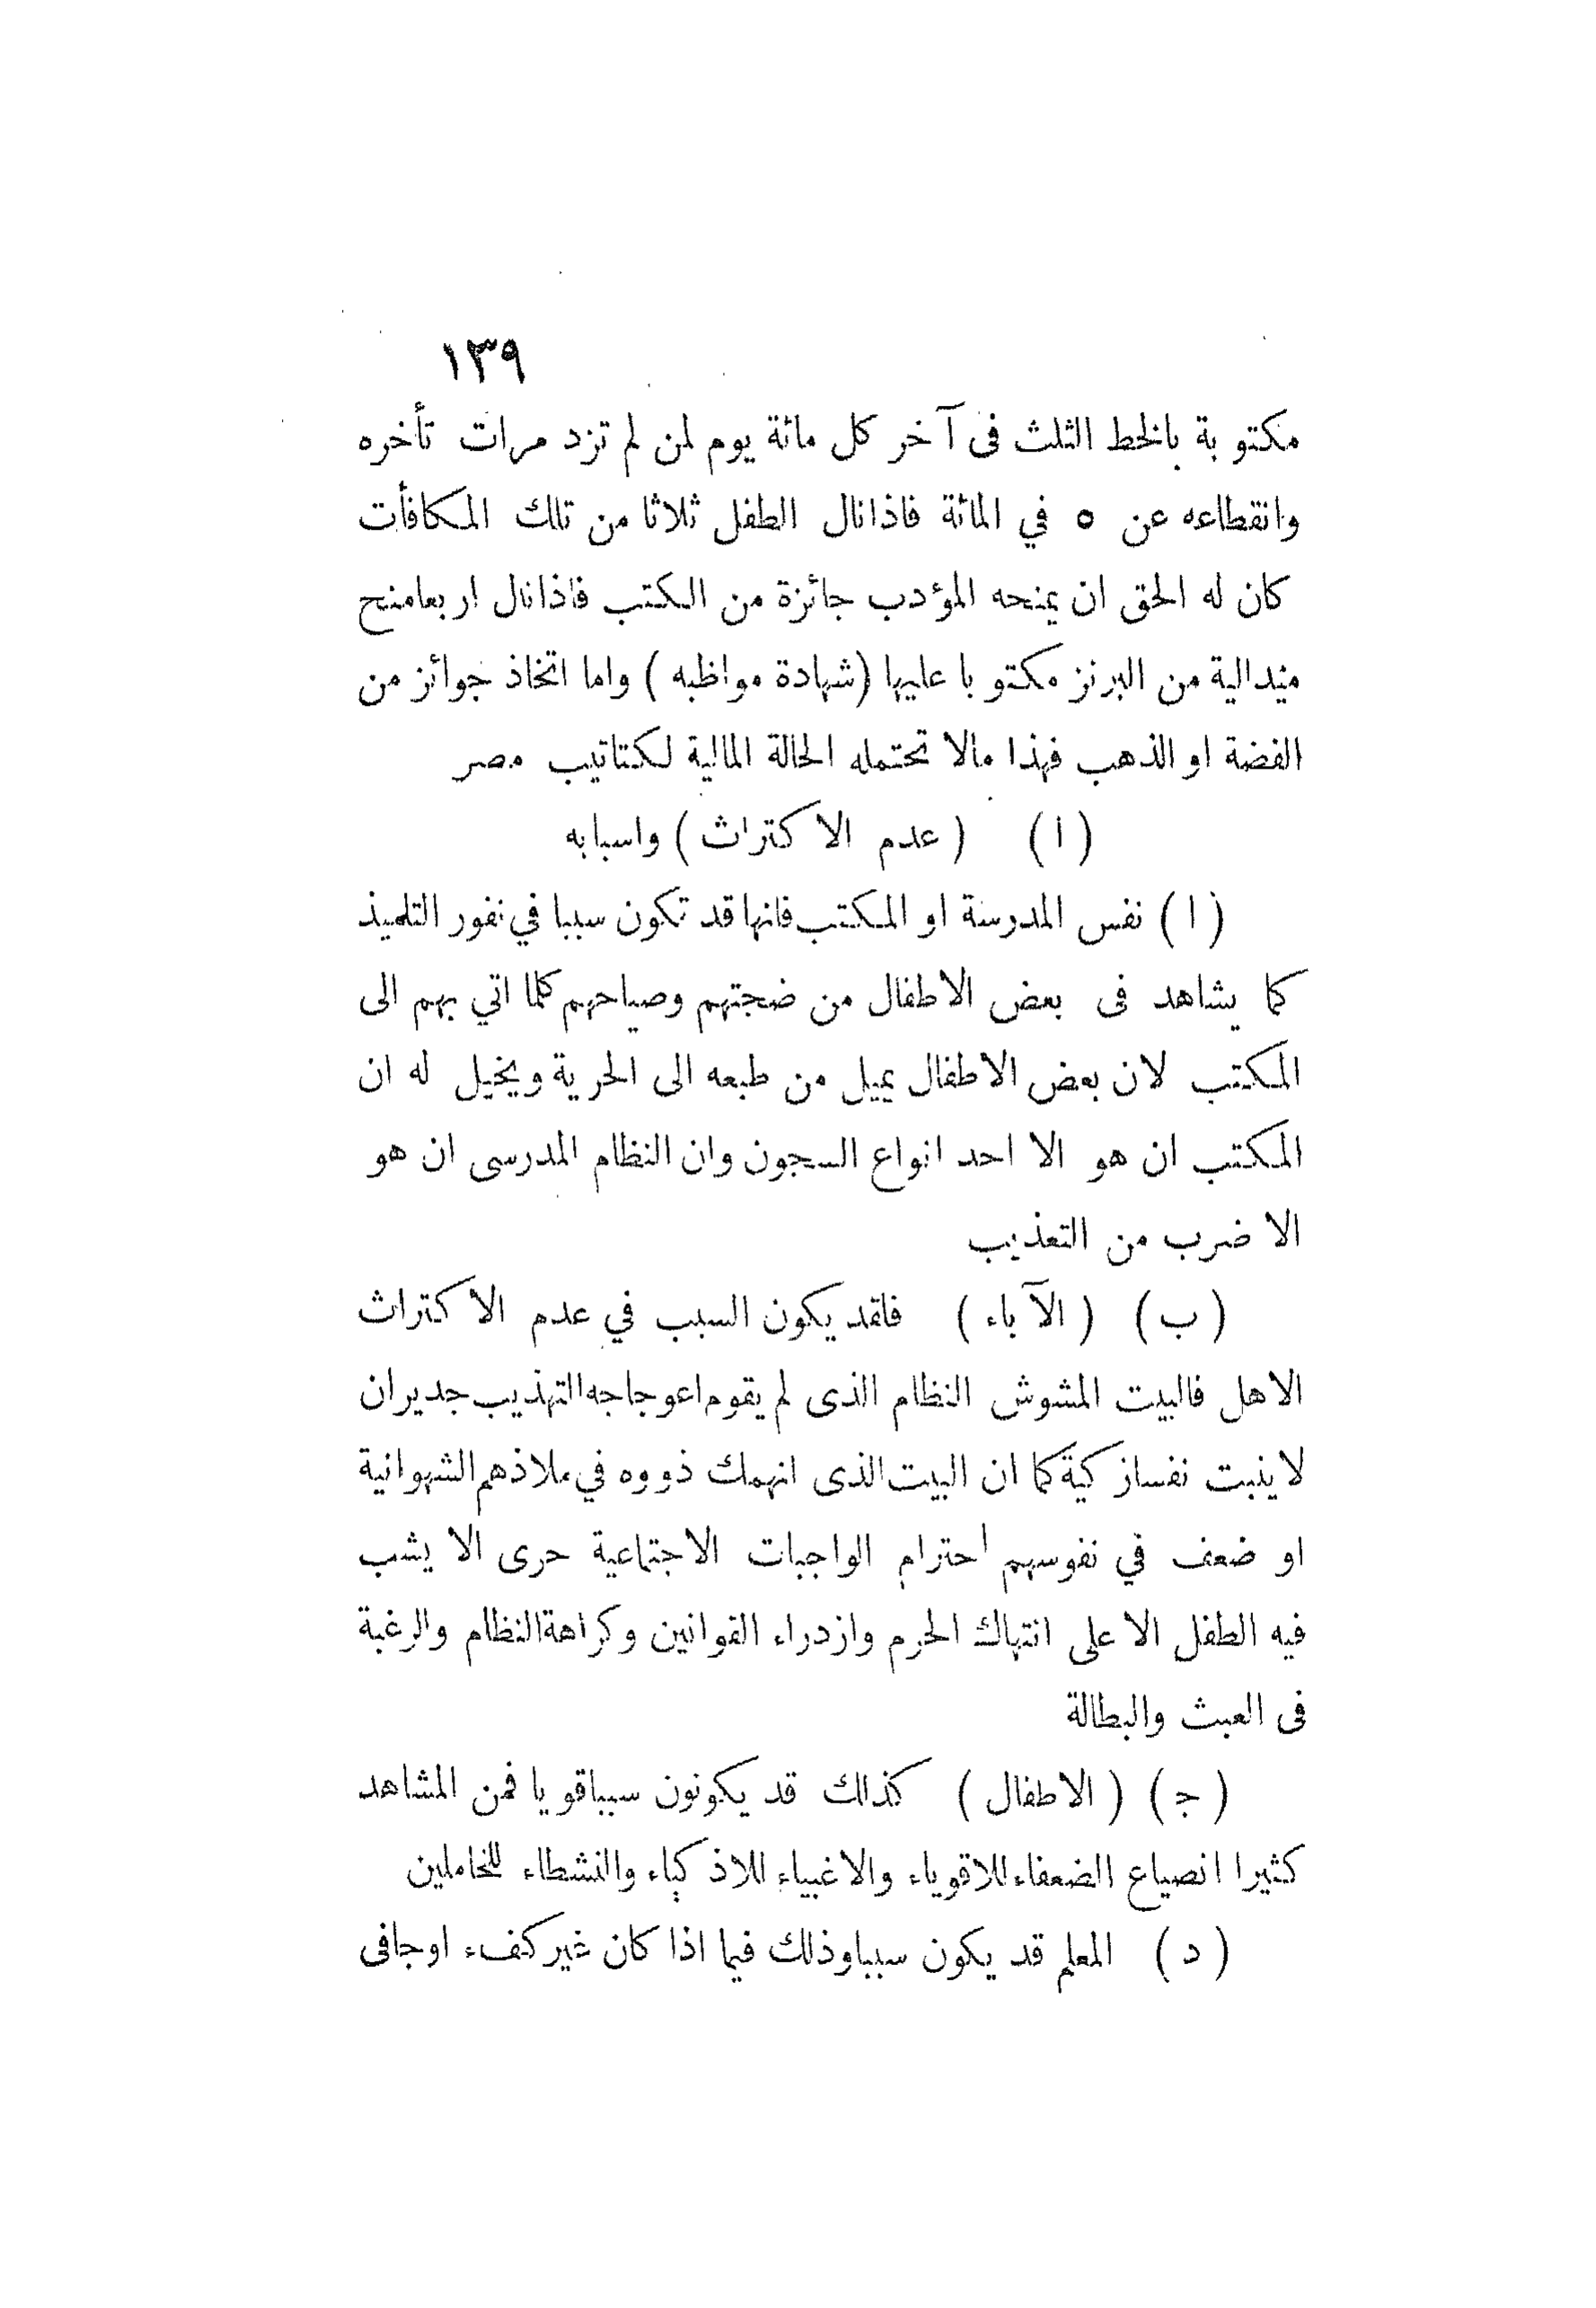 ١٣٩
مكتوبة بالخط الثلث فى آخر كل مائة يوم لمن لم تزد مرات تأخره
وانقطاعه عن ٥ في المائة فاذا نال الطفل ثلاثا من تلك المكافأت
كان له الحق ان يمنحه المؤدب جائزة من الكتب فاذا نال اربعا منح
ميدالية من البرنز مكتوبا عليها (شهادة مواظبه) واما اتخاذ جوائز من
الفضة او الذهب فهذا مالا تحتمله الحالة المالية لكتاتيب مصر
(ا) (عدم الاكتراث) واسبابه
(ا) نفس المدرسة او المكتب فانها قد تكون سببا في نفور التلميذ
كما يشاهد فى بعض الاطفال من ضجتهم وصياحهم كلما اتي بهم الى
المكتب لان بعض الاطفال يميل من طبعه الى الحرية ويخيل له ان
المكتب ان هو الا احد انواع السجون وان النظام المدرسى ان هو
الا ضرب من التعذيب
(ب) (الآباء) فلقد يكون السبب في عدم الاكتراث
الاهل فالبيت المشوش النظام الذى لم يقوم اعوجاجه التهذيب جدير ان
لا ينبت نفسا زكية كما ان البيت الذى انهمك ذووه في ملاذهم الشهوانية
او ضعف في نفوسهم احترام الواجبات الاجتماعية حرى الا يشب
فيه الطفل الا على انتهاك الحرم وازدراء القوانين وكراهة النظام والرغبة
فى العبث والبطالة
(ج) (الاطفال) كذلك قد يكونون سببا قويا فمن المشاهد
كثيرا انصياع الضعفاء للاقوياء والاغبياء للاذكياء والنشطاء للخاملين
(د) المعلم قد يكون سببا وذلك فيما اذا كان غير كفء او جافى